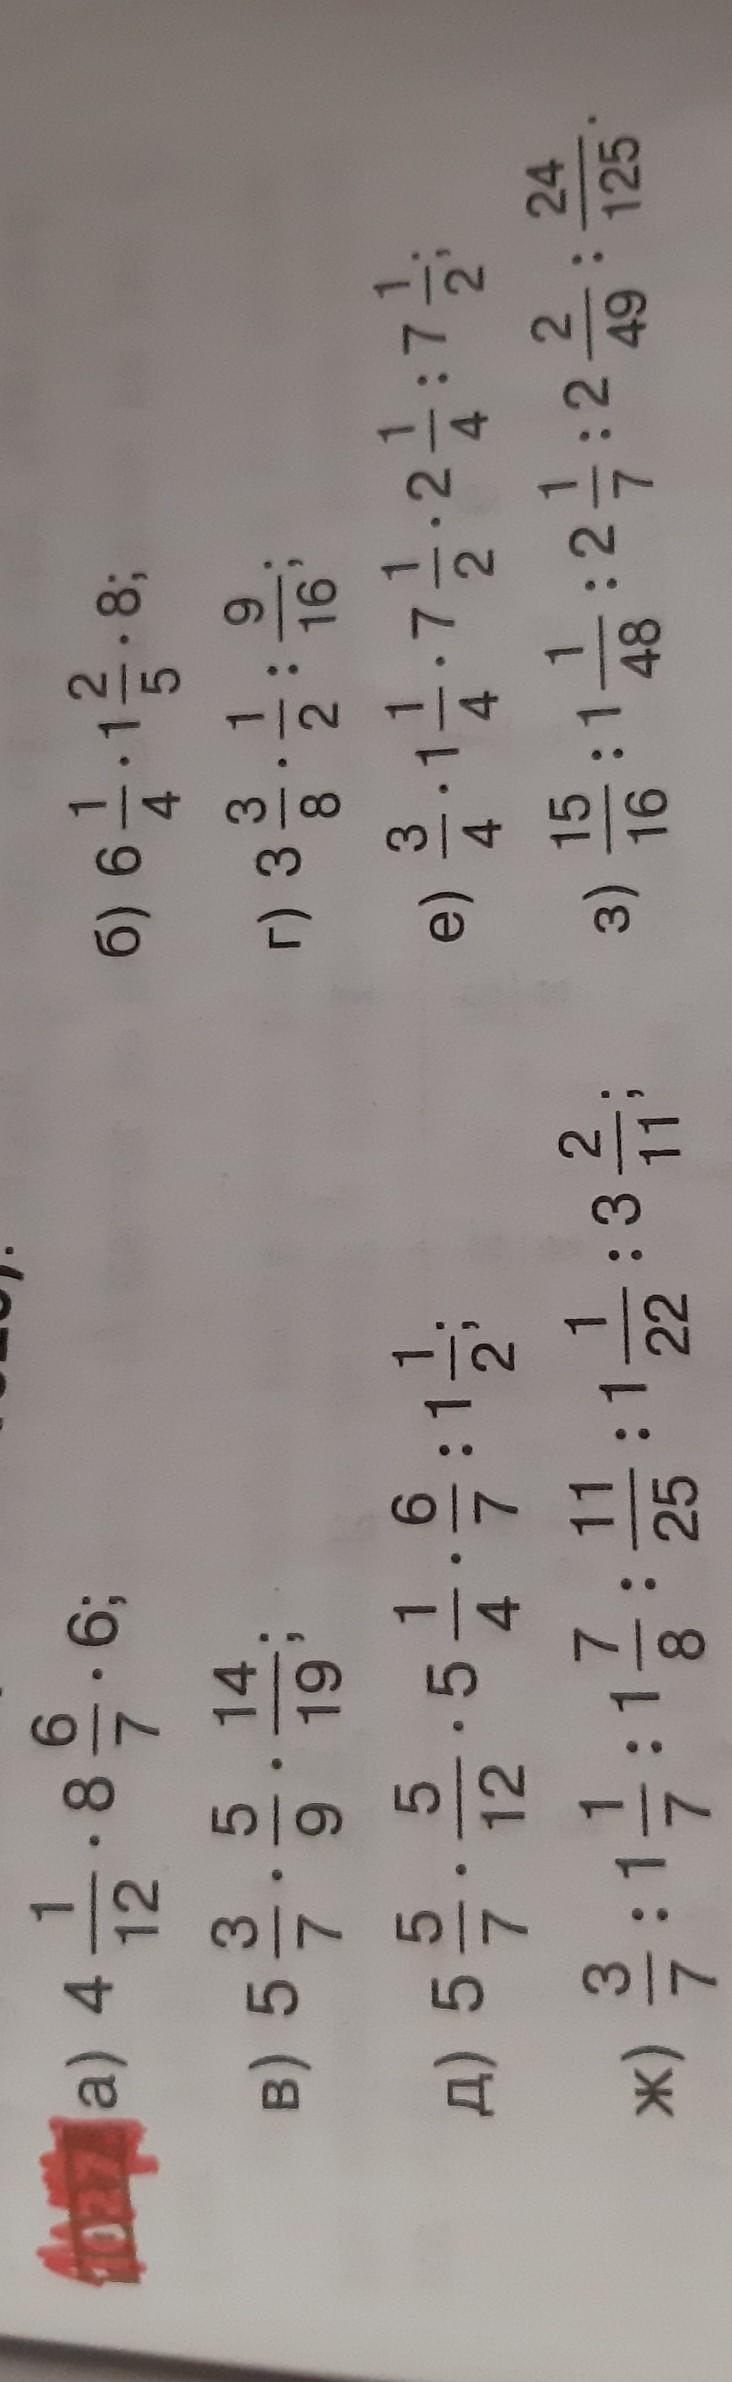 1027 а) 4 1/12 · 8 6/7 · 6; б) 6 1/4 · 1 2/5 · 8;
в) 5 3/7 · 5/9 · 14/19; г) 3 3/8 · 1/2 : 9/16;
д) 5 5/7 · 5/12 · 5 1/4 · 6/7 : 1 1/2; е) 3/4 · 1 1/4 · 7 1/2 · 2 1/4 : 7 1/2;
ж) 3/7 : 1 1/7 : 1 7/8 : 11/25 : 1 1/22 : 3 2/11; з) 15/16 : 1 1/48 : 2 1/7 : 2 2/49 : 24/125.